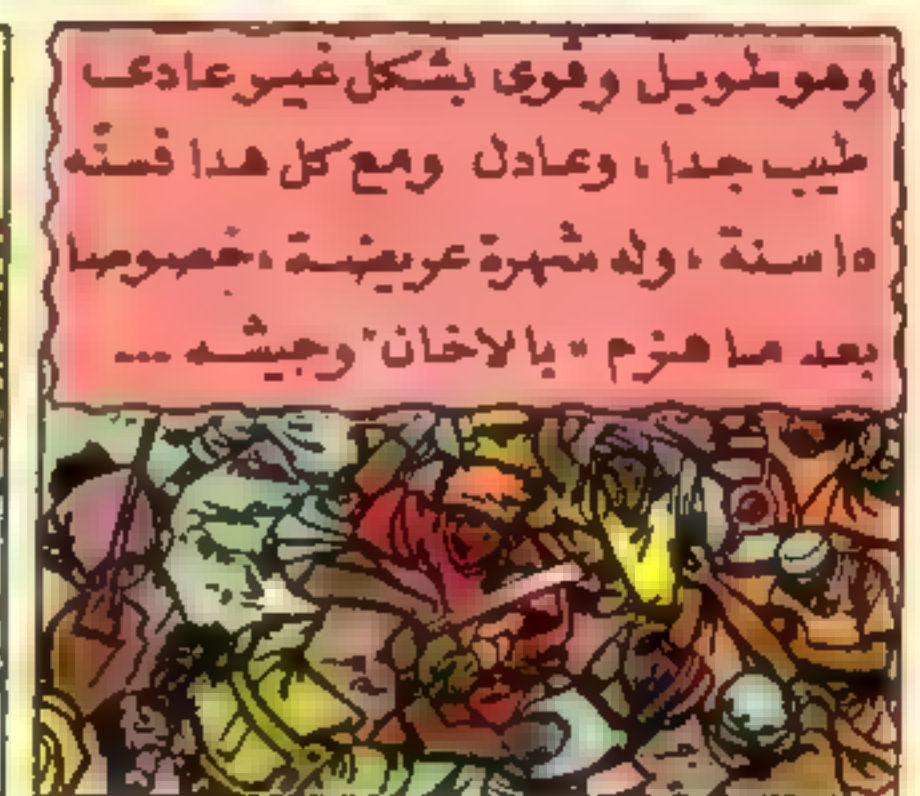 وهو طويل وقوى بشكل غير عادى
طيب جدا، وعادل ومع كل هدا فستّه
١٥ سنة، وله شهرة عريضة، خصوصا
بعد ما هزم "بالاخان" وجيشه ...